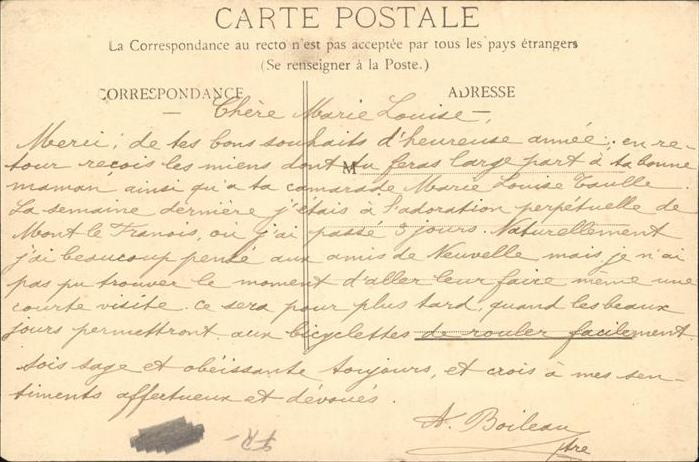 CARTE POSTALE
La Correspondance au recto n'est pas acceptée par tous les pays étrangers
(Se renseigner à la Poste.)
CORRESPONDANCE
ADRESSE
Chère Marie Louise,
Merci, de tes bons souhaits d'heureuse année; en re-
tour reçois les miens dont tu feras large part à ta bonne
M
maman ainsi qu'a ta camarade Marie Louise
La semaine dernière j'étais à l'adoration perpétuelle de
Mont le Franois, ou j'ai passé 3 jours. Naturellement
j'ai beaucoup pensé aux amis de Neuvelle mais je n'ai
pas pu trouver le moment d'aller leur faire même une
courte visite. Ce sera pour plus tard, quand les beaux
jours permettront aux bicyclettes de rouler facilement
Sois sage et obéissante toujours, et crois à mes sen-
timents affectueux et dévoués.
A. Boileau
ptre
FR-